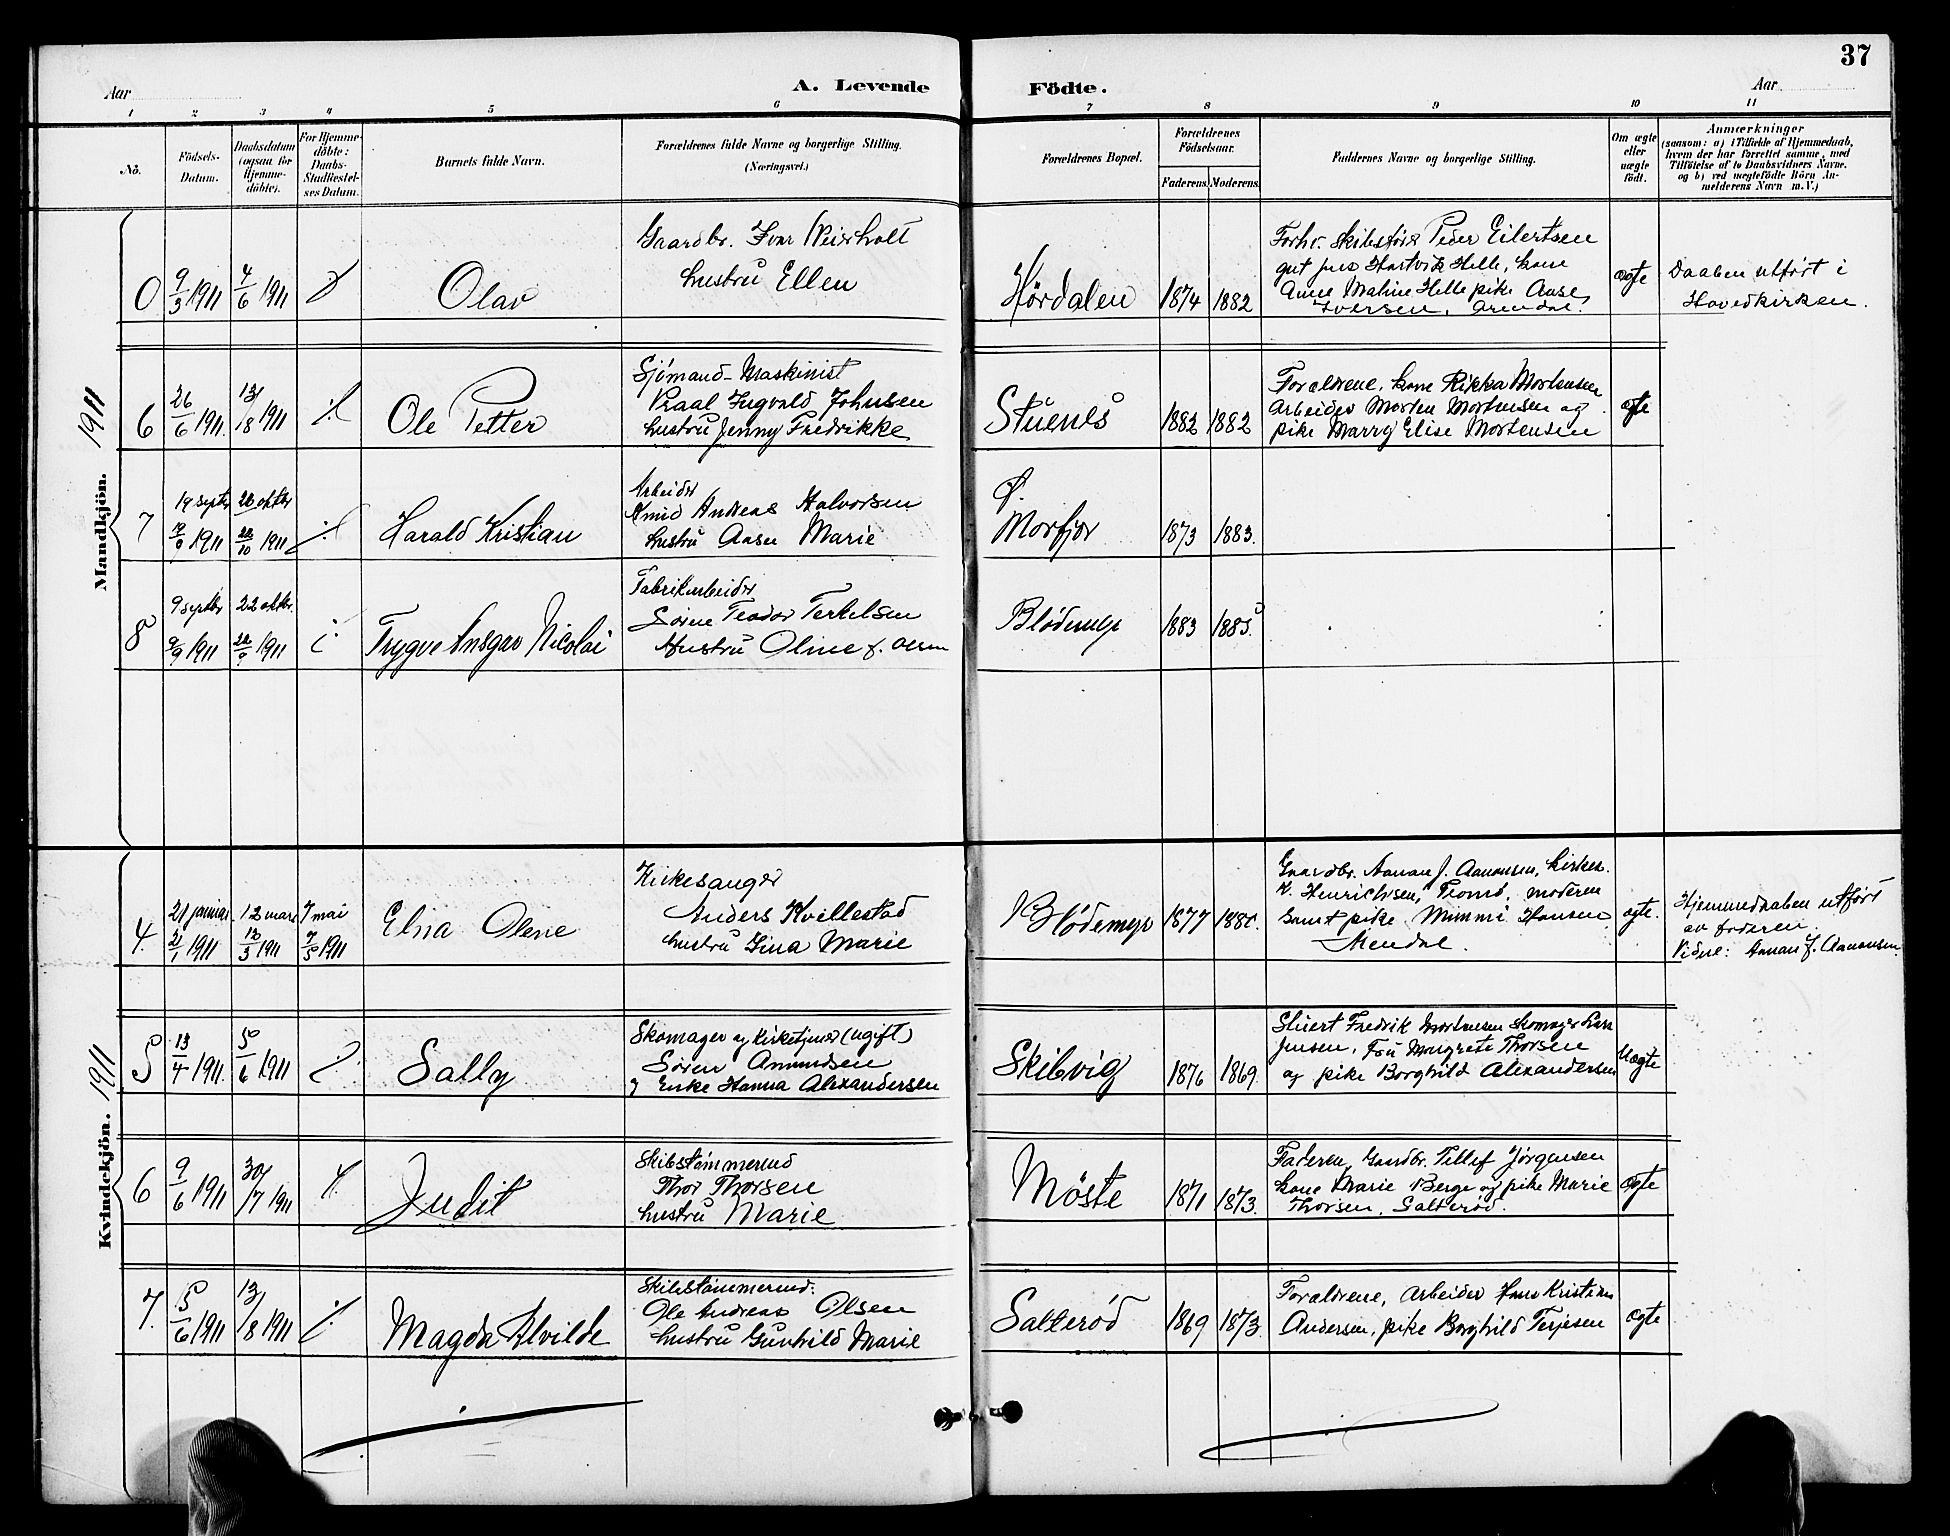 37
Aar
A. Levende Födte.
Aar
1 2 3 4 5 6 7 8 9 10 11
No.
Födsels-
Datum.
Daabsdatum
(ogsaa for
Hjemme-
döbte).
For Hjemme-
döbte:
Daabs-
Stadfæstel-
ses Datum.
Barnets fulde Navn.
Forældrenes fulde Navne og borgerlige Stilling.
(Næringsvei.)
Forældrenes Bopæl.
Forældrenes
Födselsaar.
Faderens. Moderens.
Faddernes Navne og borgerlige Stilling.
Om ægte
eller
uægte
født.
Anmærkninger
(saasom: a) i Tilfælde af Hjemmedaab,
hvem der har forrettet samme, med
Tilföielse af to Daabsvidners Navne,
og b) ved uægtefödte Börn An-
melderens Navn m. V.)
Mandkjön. 1911
9/3 1911 4/6 1911
Olav
Gaardbr. Ivar
hustru Ellen
Hördalen
1874 1882
Forhv. skibsfører Peder Eilertsen
gut Jens Hartvik Helle, kone
Anne Maline Helle pike Aase
Iversen, Arendal.
ægte
Daaben utført i
Hovedkirken.
6
26/6 1911. 13/8 1911
Ole Petter
Sjömand-Maskinist
Paal Ingvald Johnsen
hustru Jenny Fredrikke
Stuenes
1882 1882
Forældrene, kone Rikka Mortensen
Arbeider Morten Mortensen og
pike Marry Elise Mortensen
ægte
7
19 septbr 1911 oktbr 1911
Harald Kristian
Arbeider
Andreas Halvorsen
hustru Aasu Marie
Ø.
Morfjær
1873 1883.
8
9 septbr 22 oktbr.
9/9 1911 1911
Trygve Ansgar Nicolai
Fabrikarbeider
Sören Teodor Terkelsen
Hustru Oline f. Olsen
Blödemyr
1883 1885.
Kvindekjön. 1911
4.
21 januar 12 mars 7 mai
21/1 1911 12/3 1911 7/5 1911
Elna Olene
Kirkesanger
Anders Kvillestad
hustru Gina Marie
Blödemyr
1877 1880.
Gaardbr. Aanan J. Aanonsen, kirkes.
K. Henrichsen, Tromö, moderen
samt pike Mimmi Hansen
ægte.
Hjemmedaaben utført
av faderen.
Vidne: Aanan J. Aanonsen.
5
13/4 1911. 5/6 1911
Sally
Skomager og kirketjener (ugift)
Sören Amundsen
og Enke Hanna Alexandersen
Skilvig
1876 1869.
Stuert Fredrik Mortensen skomager Lars
Jensen, Fru Margrete Thorsen
og pike Borghild Alexandersen
Uægte
6
9/6 1911 30/7 1911
Judit
Skibstömmermd
Thor Thorsen
hustru Marie
Möste
1871 1873.
Faderen, Gaardbr. Tellef Jörgensen
kone Marie Berge og pike Marie
Thorsen, Salteröd.
ægte
7.
5/6 1911 13/8 1911
Magda Alvilde
Skibstömmermd.
Ole Andreas Olsen
hustru Gunhild Marie
Salteröd
1869 1873.
Forældrene, Arbeider Hans Kristian
Andersen, pike Borghild Terjesen
ægte